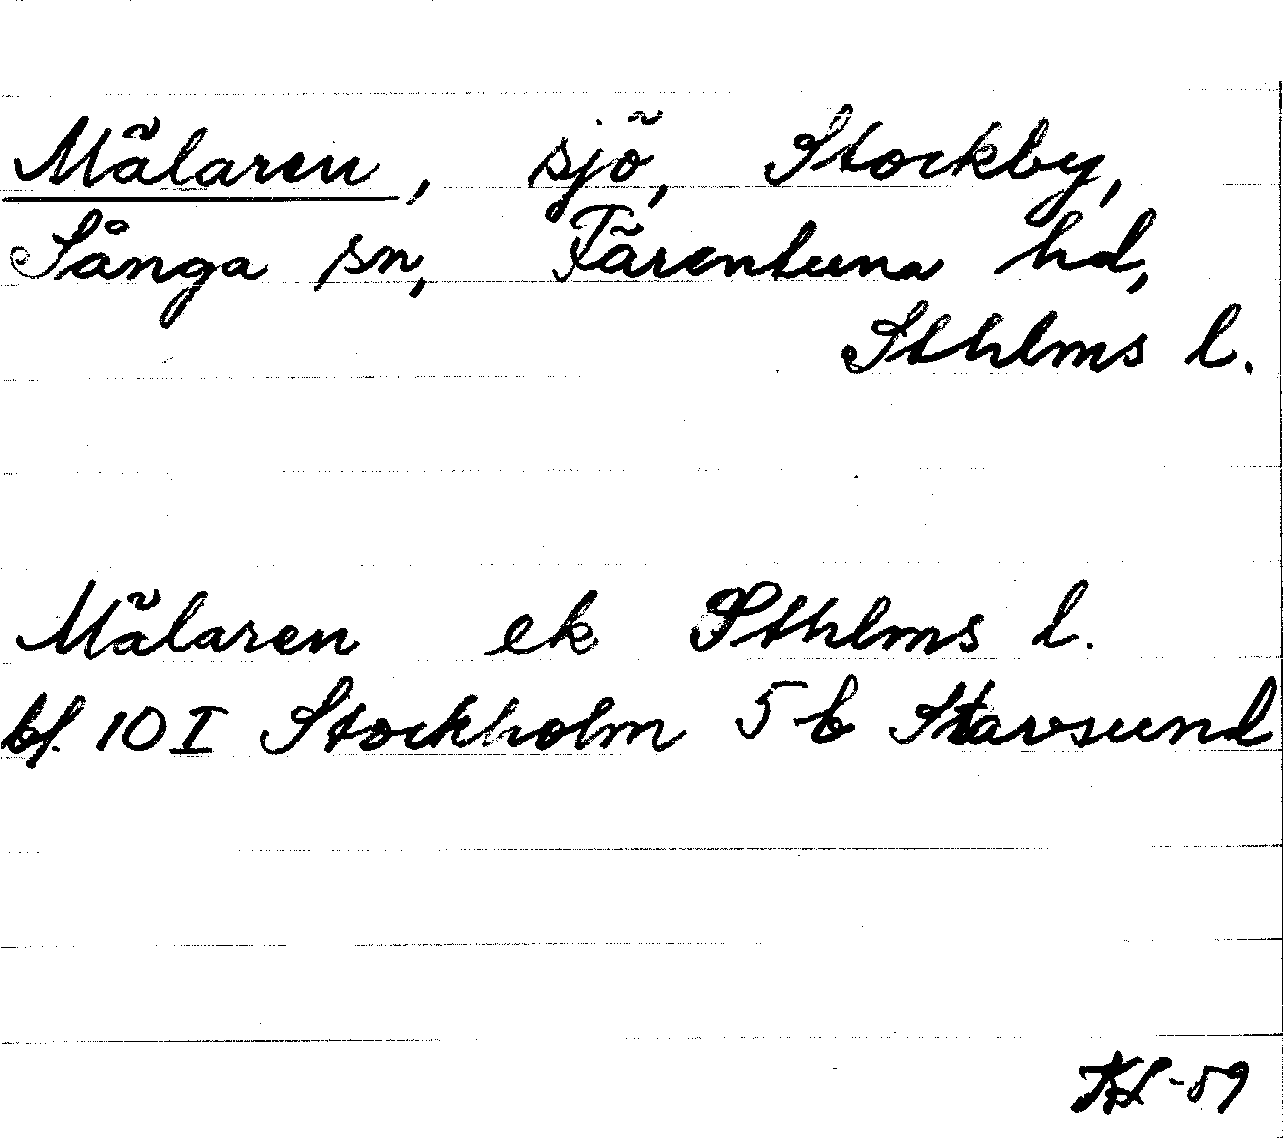 Mälaren, sjö, Stockby,
Sånga sn, Färentuna hd,
Sthlms l.
Mälaren ek Sthlms l.
bl. 10 I Stockholm 5 b Stavsund
-59